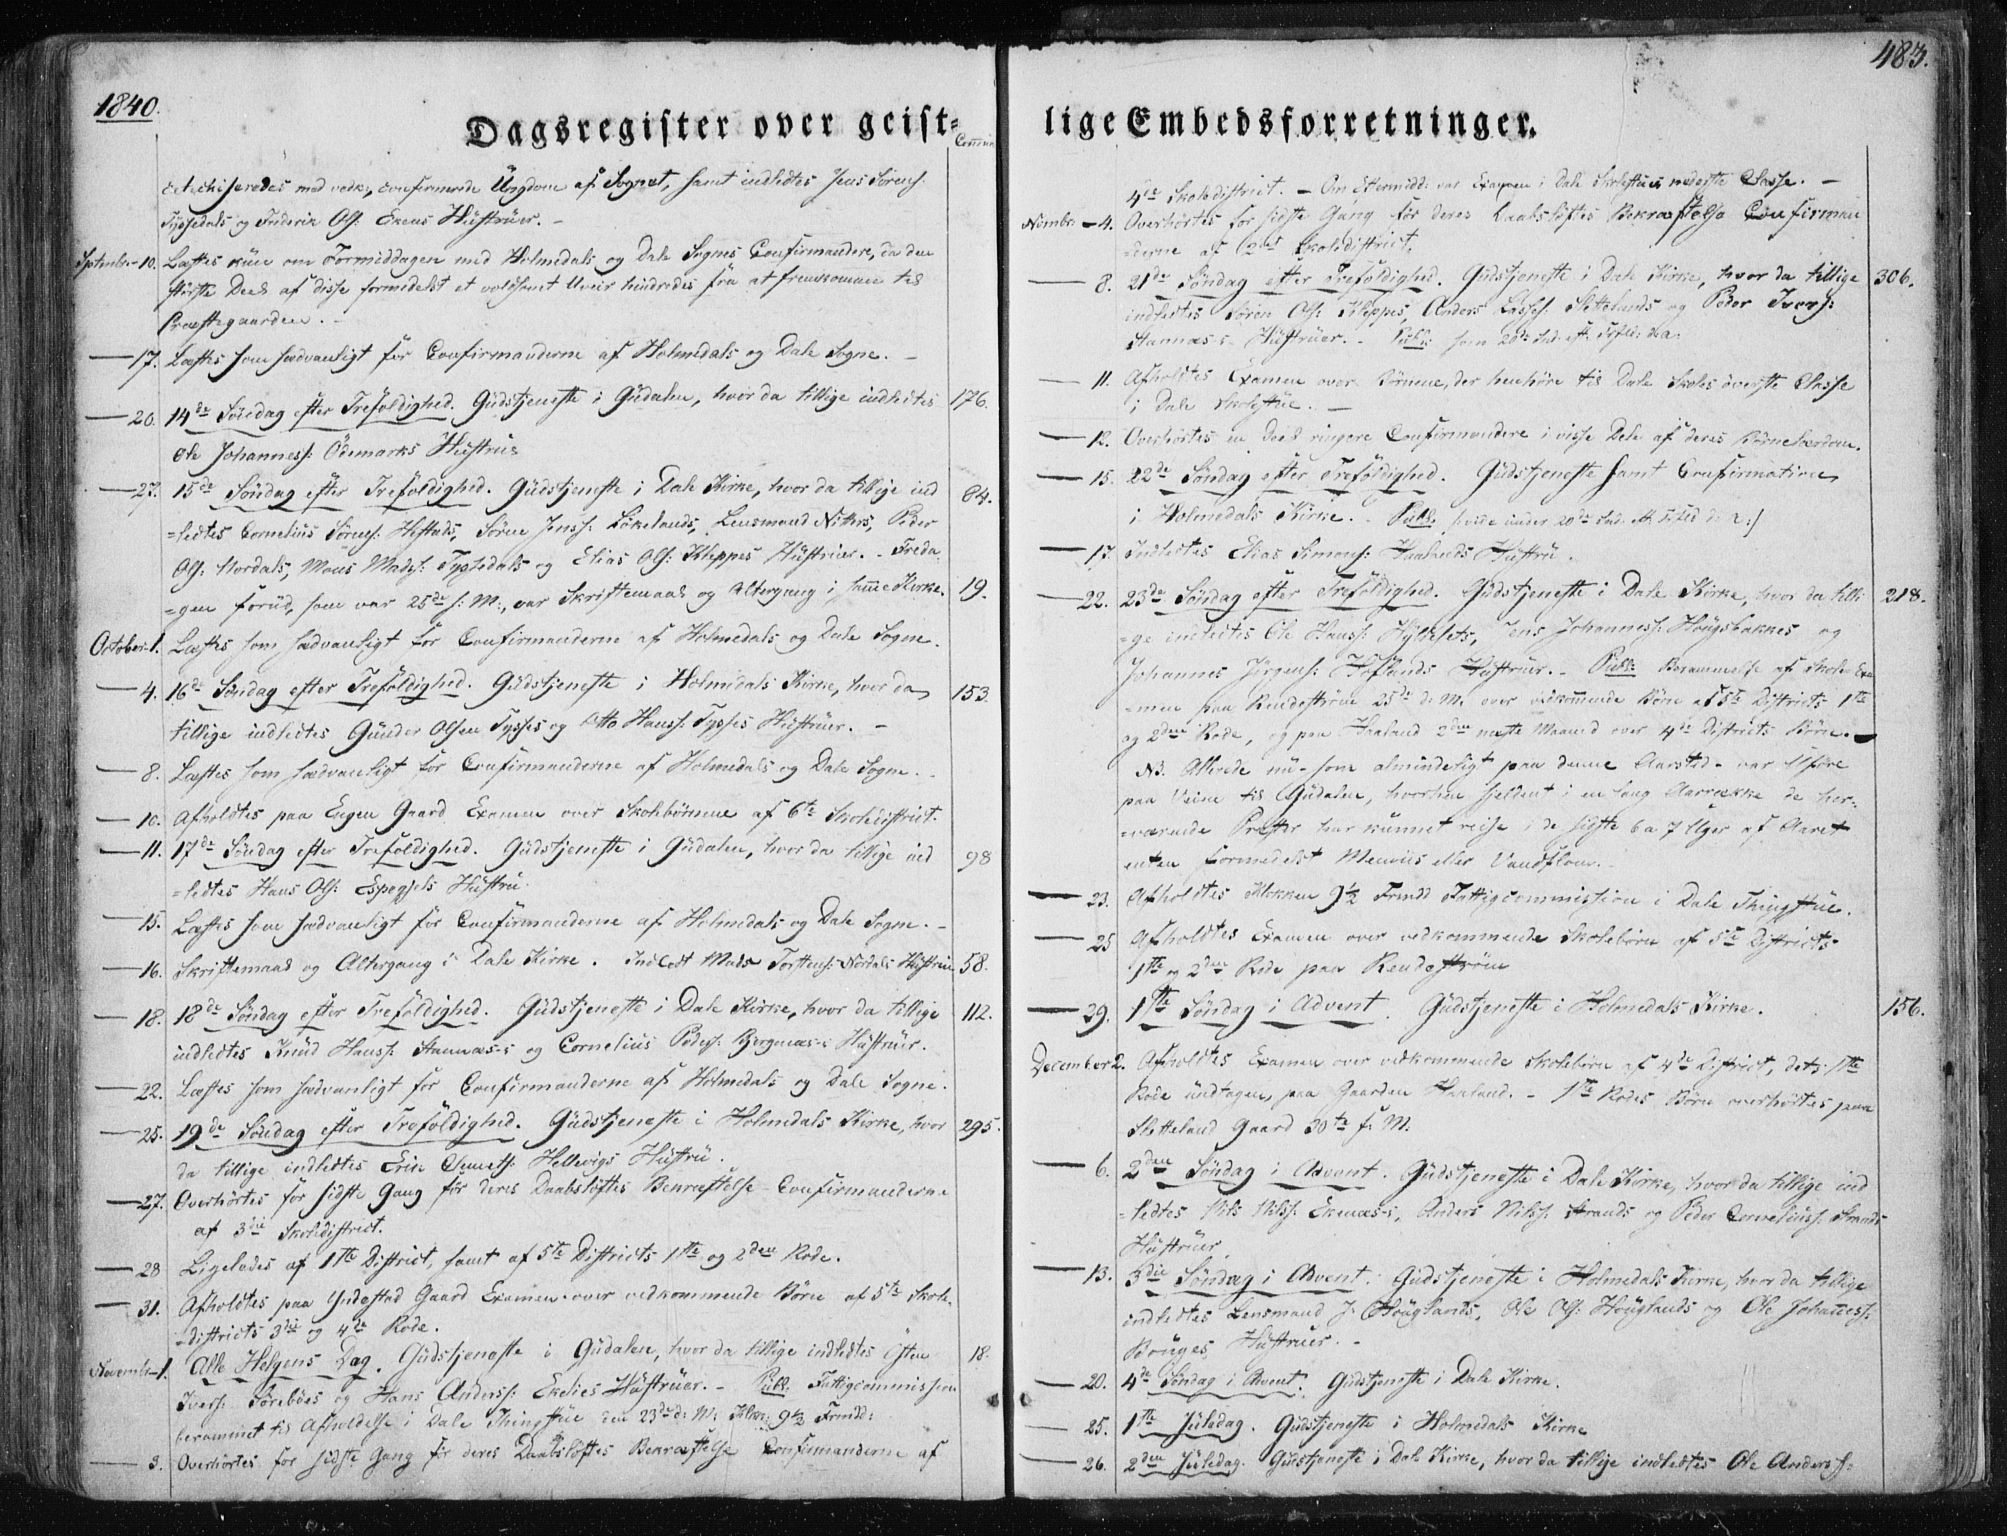 1840.
Dagsregister over geist=
Commun
catechiseredes med vedk: confirmerede Ungdom af Sognet, samt indledtes Jens Sörens:
Tyssedals og Frederik Ols: Ekens Hüstrüer. -
Septembr-10. Læstes kün om Formiddagen med Holmedals og Dale Sognes Confirmander, da den
störste Deel af disse formedelst et voldsomt Uveir hindredes fra at fremkomme til
Præstegaarden. -
17. Læstes som sædvanligt for Confirmanderne af Holmedals og Dale Sogne. -
20. 14de Söndag efter Trefoldighed. Güdstjeneste i Güdalen, hvor da tillige indledtes 176.
Ole Johanness: Ödemarks Hüstrüe
27. 15de Söndag efter Trefoldighed. Güdstjeneste i Dale Kirke, hvor da tillige ind 84.
=ledtes Cornelius Sörens: Hestads, Sören Jenss: Lökelands, Lensmand Nitters, Peder
Ols: Nordals, Mons Madss: Tyssedals og Elias Ols: Kleppes Hüstrüer. - Freda
=gen forüd, som var 25de s: M:, var Skriftemaal og Altergang i samme Kirke. 19.
October-1. Læstes som sædvanligt for Confirmanderne af Holmedals og Dale Sogne.
4. 16de Söndag efter Trefoldighed. Güdstjeneste i Holmedals Kirke, hvor da 153.
tillige indledtes Günder Olsen Tysses og Otto Hanss: Tysses Hüstrüer. -
8. Læstes som sædvanligt for Confirmanderne af Holmedals og Dale Sogne. -
10. Afholdtes paa Engen Gaard Examen over Skolebörnene af 6te Skoledistrict.
11. 17de Söndag efter Trefoldighed. Güdstjeneste i Güdalen, hvor da tillige ind 98
=ledtes Hans Ols: Espegjels Hüstrü.
15. Læstes som sædvanligt for Confirmanderne af Holmedals og Dale Sogne. -
16. Skriftemaal og Altergang i Dale Kirke. Indledt Mads Torstens: Nordals Hüstrüe 58.
18. 18de Söndag efter Trefoldighed. Güdstjeneste i Dale Kirke, hvor da tillige 112.
indledtes Knüd Hanss: Stannæs-s og Cornelius Peders: Bergenæs-s Hüstrüer.
22. Læstes som sædvanligt for Confirmanderne af Holmedals og Dale Sogne.
25. 19de Söndag efter Trefoldighed. Güdstjeneste i Holmedals Kirke, hvor 295.
da tillige indledtes Erik Hellevigs Hüstrü.
27. Overhörtes for sidste Gang för deres Daabslöftes Bekræftelse Confirmanderne
af 3die Skoledistrict.
28 Ligeledes af 1ste District, samt af 5te Districts 1ste og 2den Rode.
31. Afholdtes paa Yndestad Gaard Examen over vedkommende Börn af 5te Skole-
=districts 3die og 4de Rode.
November-1. Alle Helgens Dag. Güdstjeneste i Güdalen, hvor da tillige indledtes Östen 18.
Ivers: Söreböes og Hans Anderss: Ekelies Hüstrüer. - Publ: Fattigcommission
berammet til Afholdelse i Dale Thingstüe den 23de d: M: Klok: 9½ Frmdd:
3. Overhörtes for sidste Gang för deres Daabslöftes Bekræftelse Confirmanderne af
483.
lige Embedsforretninger.
4de Skoledistrict. - Om Eftermidd: var Examen i Dale Skolestües nederste Classe. -
Novembr. - 4. Overhörtes for sidste Gang för deres Daabslöftes Bekræftelse Confirman
=derne af 2det Skoledistrict.
8. 21de Söndag efter Trefoldighed. Güdstjeneste i Dale Kirke, hvor da tillige 306.
indledtes Sören Ols: Kleppes, Anders Lasses: Slettelands og Peder Ivers:
Stannæs-s Hüstrüer. - Publ: som 20de Snd: eft: Trefld:
11. Afholdtes Examen over Börnene, der henhöre til Dale Skoles överste Classe
i Dale Skolestüe. -
12. Overhörtes en Deel ringere Confirmandere i visse Dele af deres Börnelærdom.
15. 22de Söndag efter Trefoldighed. Güdstjeneste samt Confirmation
i Holmedals Kirke. - Publ: /: vide ünder 20de Snd. eft. Trefld :/
17. Indledtes Elias Simons: Haalands Hüstrü.
22. 23de Söndag efter Trefoldighed. Güdstjeneste i Dale Kirke, hvor da tilli- 218.
=ge indledtes Ole Hanss: Hyllesets, Jens Johanness: Höugsbakkes og
Johannes Jörgens: Hoflands Hüstrüer. - Publ: Berammelse af Skole-Exa
=men paa Rendeström 25de d: M. over vedkommende Börn af 5te Districts 1ste
og 2den Rode, og paa Haaland 2den næste Maaned over 4de Districts Börn. -
NB. Allerede nü - som almindeligt paa denne Aarstid - var Uföre
paa Veiene til Güdalen, hvorhen sjeldent i en lang Aarrække de her-
=værende Præster har künnet reise i de sidste 6 a 7 Uger af Aaret
enten formedelst Menniis eller Vandflom. -
23. Afholdtes Klokken 9½ Frmdd Fattigcommission i Dale Thingstüe.
25 Afholdtes Examen over vedkommende Skolebörn af 5te Districts
1ste og 2den Rode paa Rendeström
29. 1ste Söndag i Advent. Güdstjeneste i Holmedals Kirke. 156.
December 2. Afholdtes Examen over vedkommende Skolebörn af 4de District, dets 1ste
Rode undtagen, paa Gaarden Haaland. - 1ste Rodes Börn overhörtes paa
Sletteland Gaard 30te f: M.
6. 2den Söndag i Advent. Güdstjeneste i Dale Kirke, hvor da tillige ind
=ledtes Nils Nilss: Ekenæs-s, Anders Nilss: Strands og Peder Corneliuss: Strands
Hüstrüer
13. 3die Söndag i Advent. Güdstjeneste i Holmedals Kirke, hvor da tillige
indledtes Lensmand J. Höuglands, Ole Ols: Höuglands og Ole Johanness:
Hüstrüer. -
20. 4de Söndag i Advent. Güdstjeneste i Dale Kirke.
25. 1ste Jüledag. Güdstjeneste i Holmedals Kirke
26. 2den Jüledag. Güdstjeneste i Dale Kirke, hvor da tillige indledtes Ole Anders s=